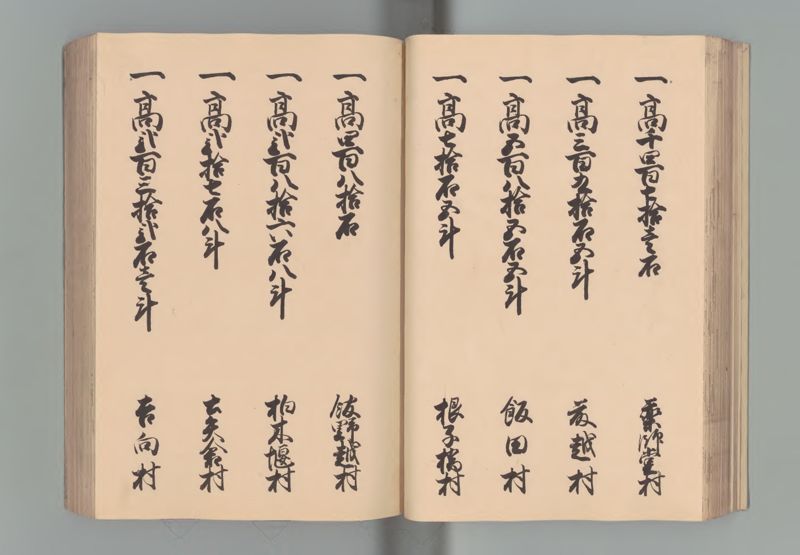 一高千四百七拾壱石 薬師堂村
一高三百九拾石五斗 荻越村
一高五百八拾五石五斗 飯田村
一高七拾石五斗 根子橋村
一高四百八拾石 飯野越村
一高弐百八拾六石八斗 柏木堰村
一高弐拾七石八斗
一高弐百三拾弐石壱斗 吉向村